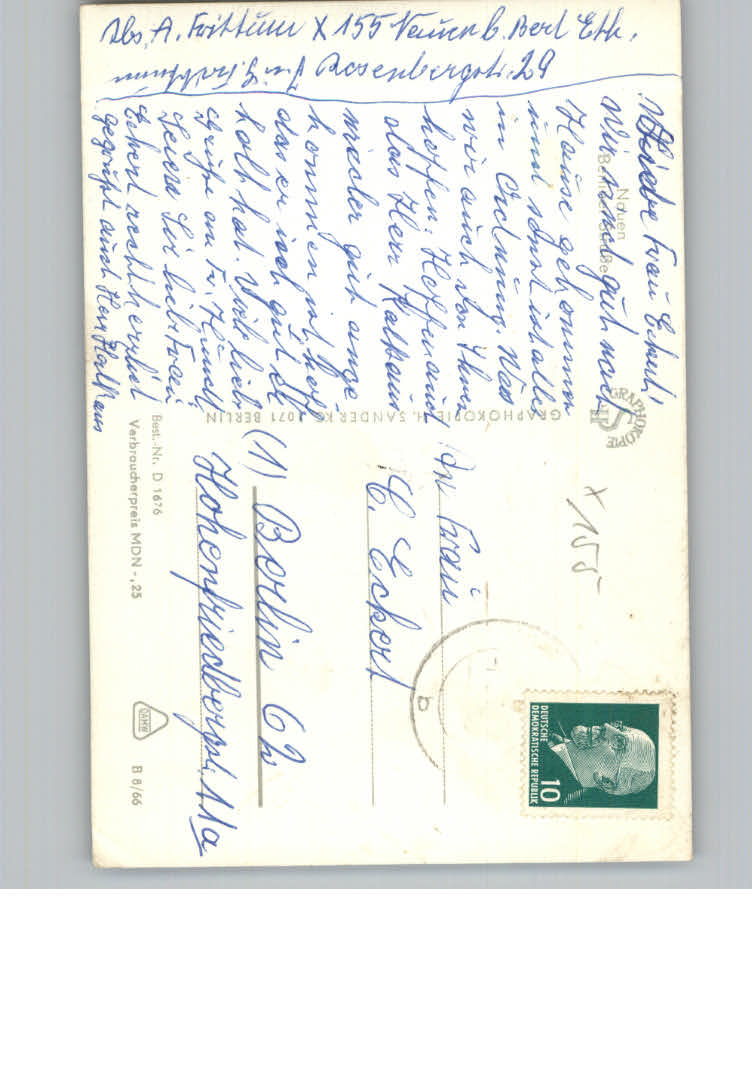 Abs. A. Frittum X 155 Nauen b. Berl Etk.
Rosenbergstr. 29
Liebe Frau Eckert!
Wir sind gut nach
Hause gekommen
und sonst ist alles
in Ordnung. Was
wir auch von Ihnen
hoffen. Hoffen auch
das Herr Kalkaus
wieder gut ange
kommen ist, hof
das er sich gut er
holt hat. Viele liebe
Grüße an Fr.
Seien Sie liebe Frau
Eckert recht herzlich
gegrüßt auch Herr Kalkaus
Nauen
GRAPHOKOPIE H. SANDER KG 1071 BERLIN
GRAPHOKOPIE
HS
X 155
An Frau
E. Eckert
(1) Berlin 62
Hohenfriedbergstr. 11a
DEUTSCHE
DEMOKRATISCHE REPUBLIK
10
b
Best.-Nr. D 1676
Verbraucherpreis MDN -,25
DAMW
B 8/66